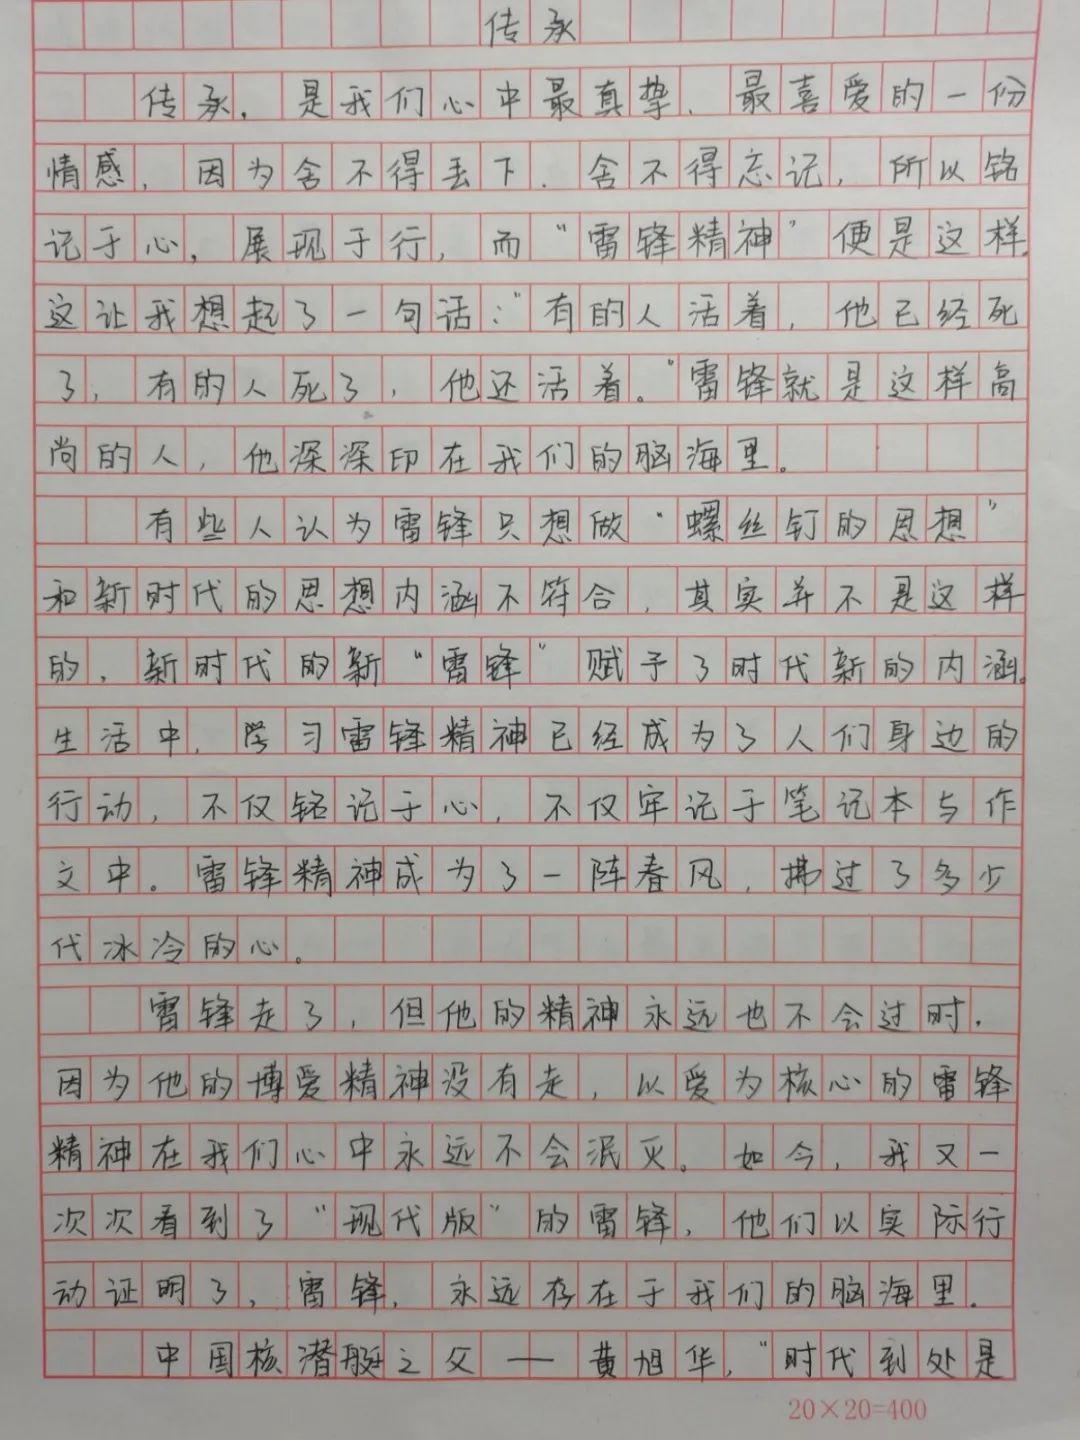 传承
传承，是我们心中最真挚、最喜爱的一份
情感，因为舍不得丢下、舍不得忘记，所以铭
记于心，展现于行，而“雷锋精神”便是这样。
这让我想起了一句话：“有的人活着，他已经死
了，有的人死了，他还活着。”雷锋就是这样高
尚的人，他深深印在我们的脑海里。
有些人认为雷锋只想做“螺丝钉的思想”
和新时代的思想内涵不符合，其实并不是这样
的，新时代的新“雷锋”赋予了时代新的内涵。
生活中，学习雷锋精神已经成为了人们身边的
行动，不仅铭记于心，不仅牢记于笔记本与作
文中。雷锋精神成为了一阵春风，拂过了多少
代冰冷的心。
雷锋走了，但他的精神永远也不会过时，
因为他的博爱精神没有走，以爱为核心的雷锋
精神在我们心中永远不会泯灭。如今，我又一
次次看到了“现代版”的雷锋，他们以实际行
动证明了，雷锋，永远存在于我们的脑海里。
中国核潜艇之父——黄旭华，“时代到处是
20×20=400